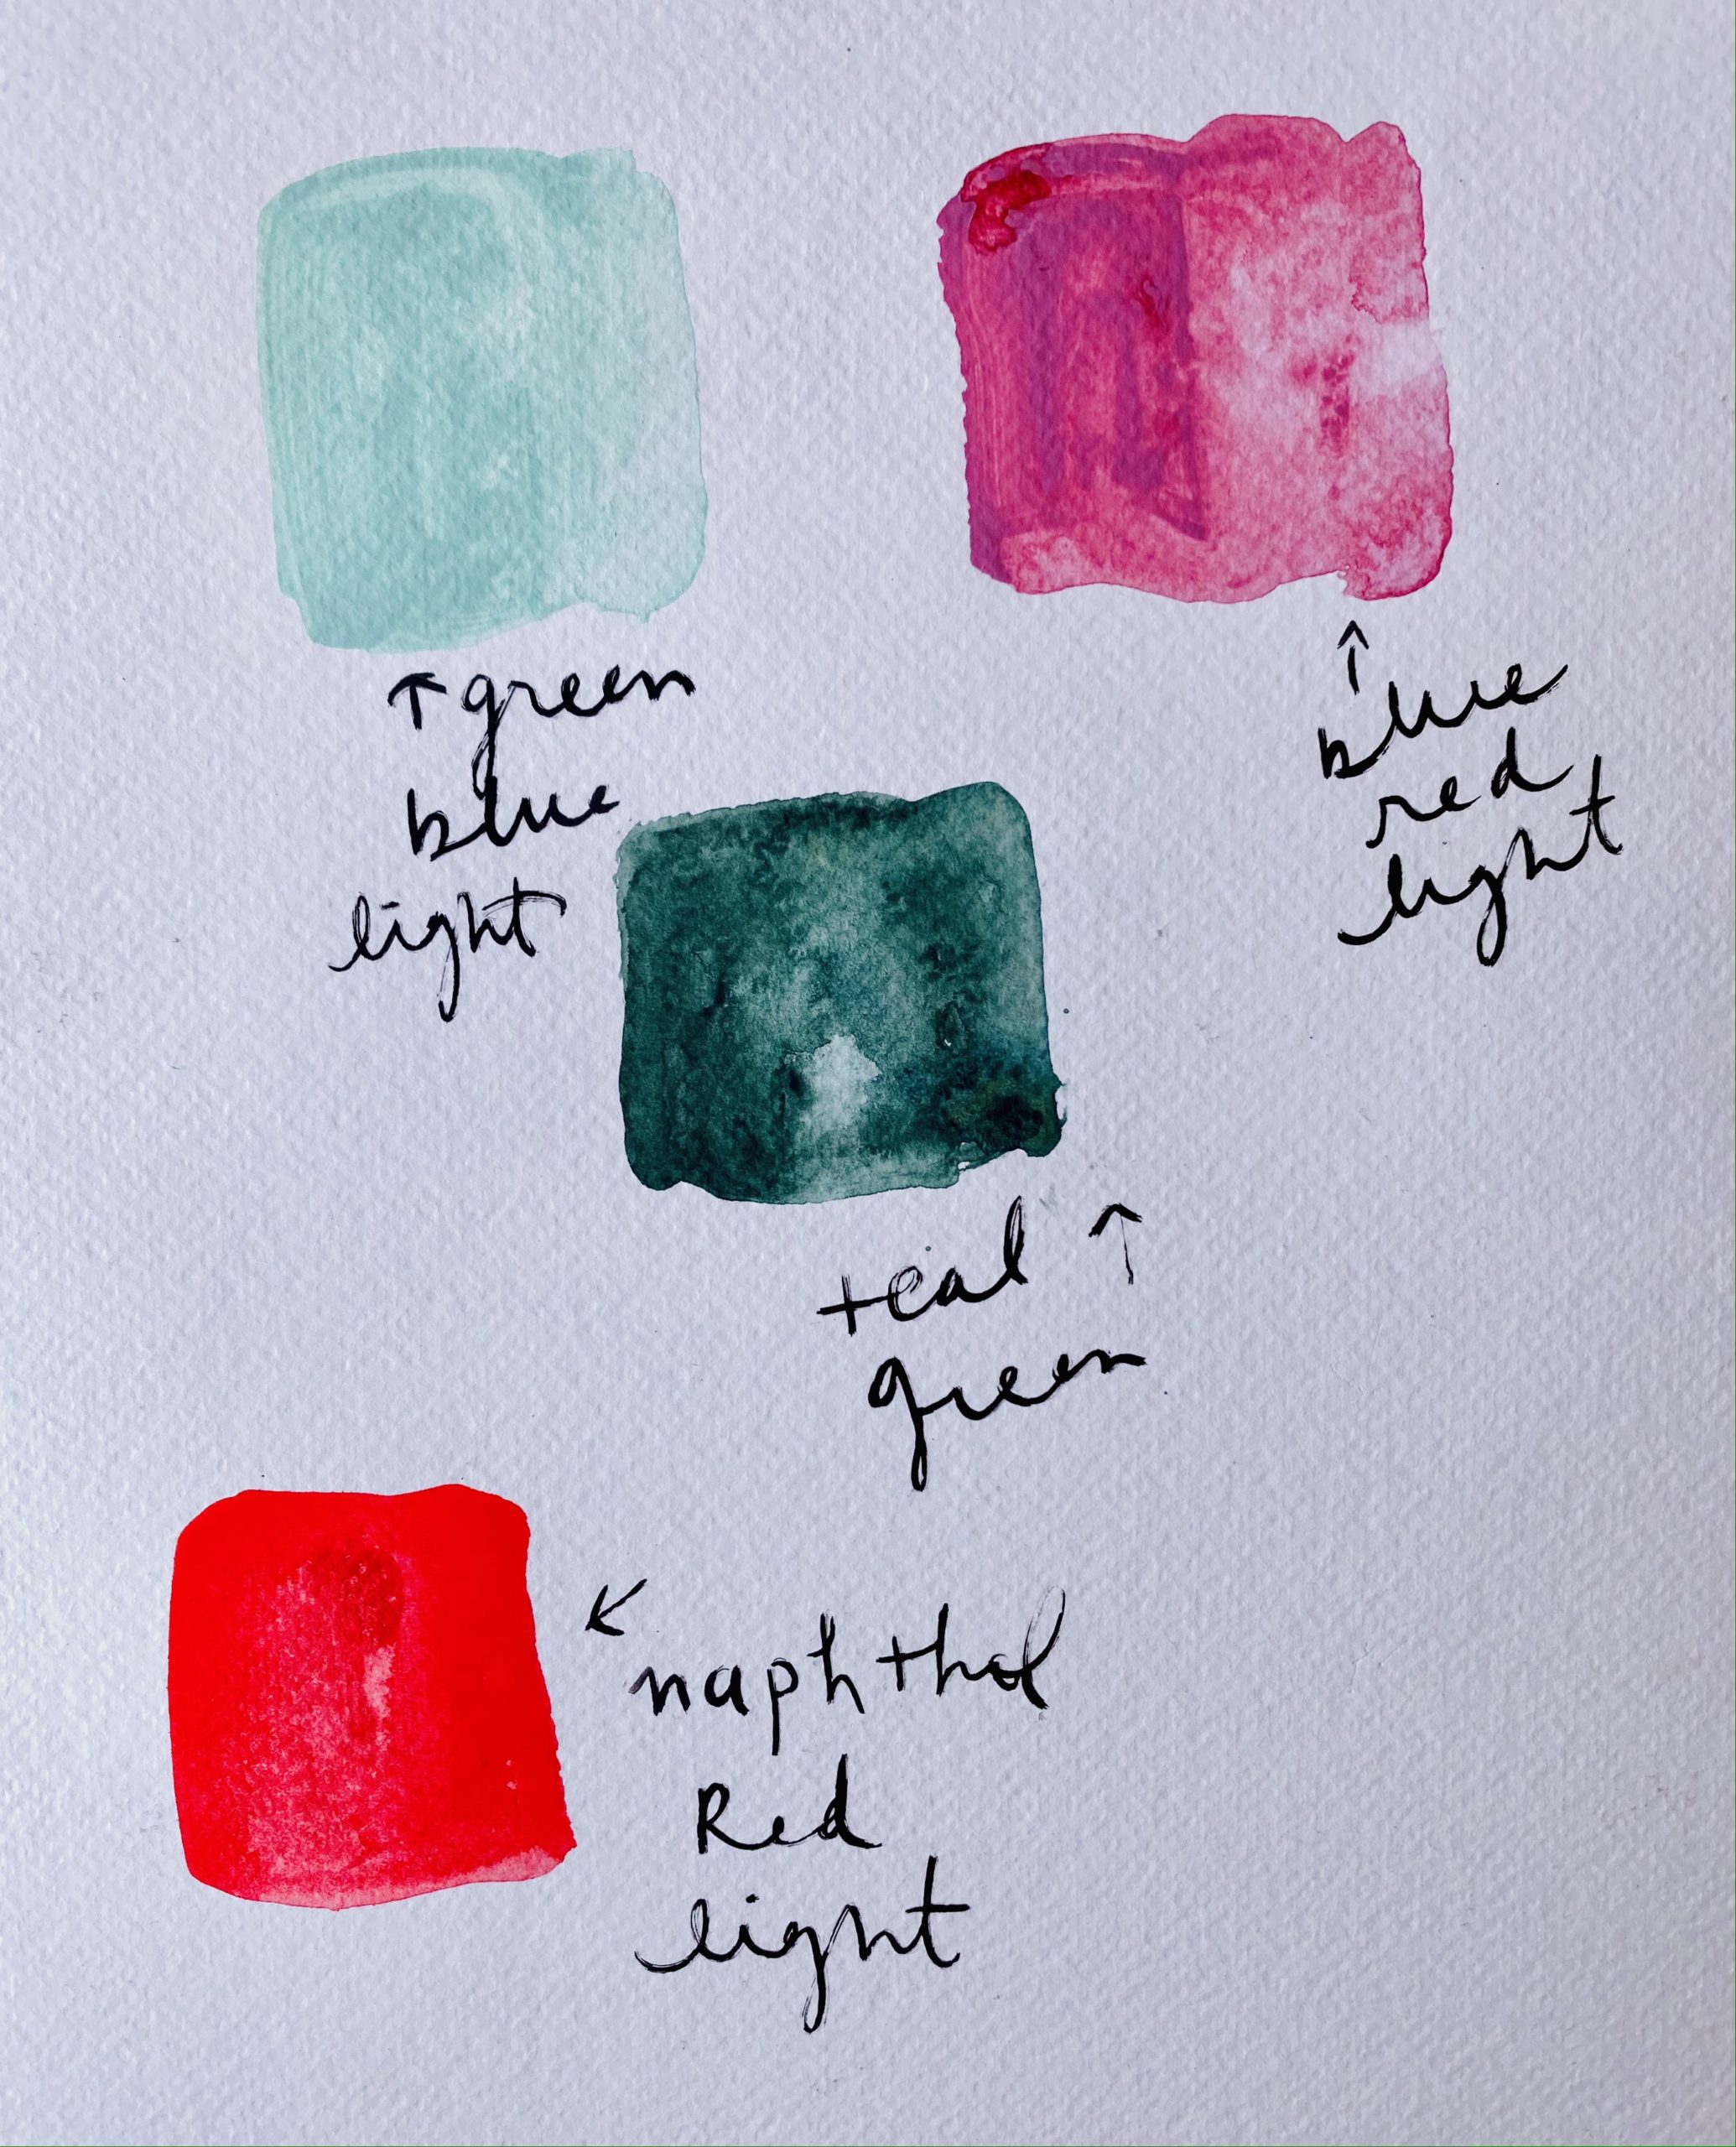 ↑ green
blue
light
↑
blue
red
light
teal ↑
green
← naphthol
Red
light